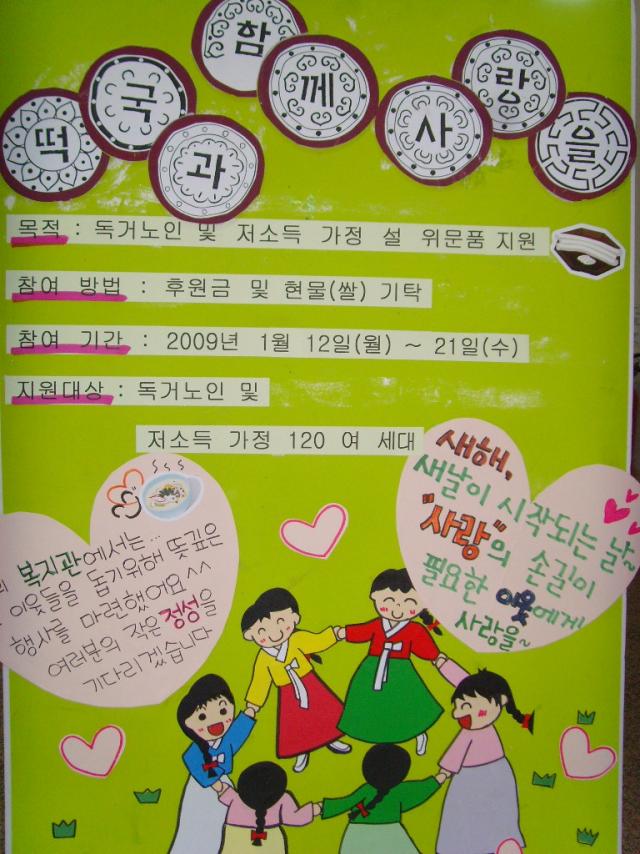 떡국과 함께 사랑을
목적 : 독거노인 및 저소득 가정 설 위문품 지원
참여 방법 : 후원금 및 현물(쌀) 기탁
참여 기간 : 2009년 1월 12일(월) ~ 21일(수)
지원대상 : 독거노인 및
저소득 가정 120 여 세대
새해,
새날이 시작되는 날~
"사랑"의 손길이
필요한 이웃에게
사랑을~
복지관에서는...
이웃들을 돕기위해 뜻깊은
행사를 마련했어요^^
여러분의 작은 정성을
기다리겠습니다